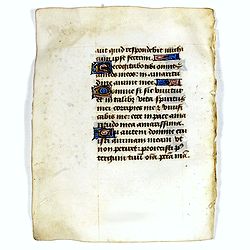 aut quid respondebit michi
cum ipse fecerim
Recogitabo tibi omnes
annos meos: in amaritu
dine anime mee
Domine si sic vivitur
et in talibus vita spiritus
mei corripies me et vivifi
cabis me: ecce in pace ama
ritudo mea amarissima
Tu autem domine erui
sti animam meam ut
non periret: proiecisti p
tergum tuum oia pctā mea